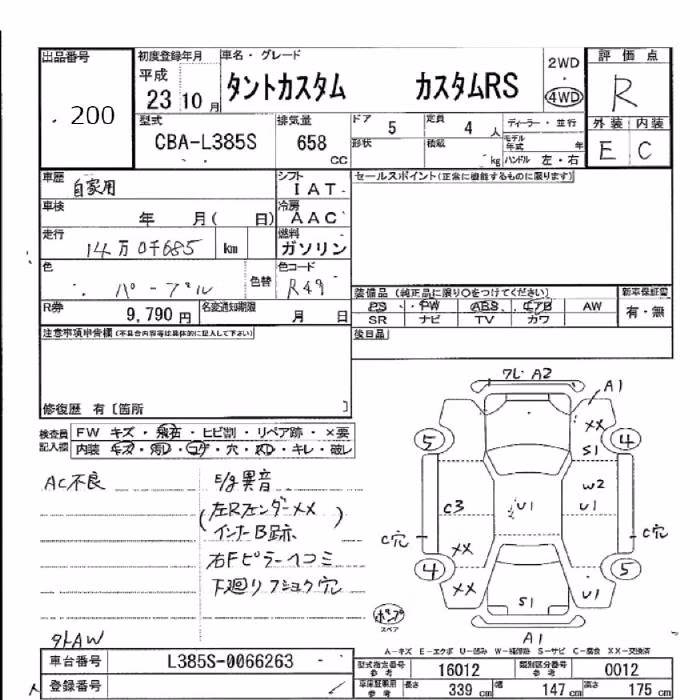 出品番号
200
初度登録年月
平成
23 10月
車名・グレード
タントカスタム カスタムRS
2WD
・
4WD
評価点
R
型式
CBA-L385S
排気量
658
CC
ドア
5
定員
4 人
ディーラー・並行
形状
積載
kg
モデル年式 年
ハンドル 左・右
外装 内装
E C
車歴
自家用
シフト
IAT
セールスポイント(正常に機能するものに限ります)
車検
年 月( 日)
冷房
AAC
走行
14万0千685 km
燃料
ガソリン
色
パープル
色替
色コード
R49
R券
9,790円
名変通知期限
月 日
装備品 (純正品に限り○をつけてください)
新車保証書
PS ・PW ABS エアB AW
有・無
SR ナビ TV カワ
後日品
注意事項申告欄(不具合内容等は具体的に記入して下さい)
修復歴 有〔箇所 〕
検査員記入欄
FW キズ・飛石・ヒビ割・リペア跡・×要
内装 キズ・汚レ・コゲ・穴・スレ・キレ・破レ
AC不良
E/g異音
(左Rフェンダー××
インナーB跡)
右Fピラーヘコミ
下廻りフショク穴
外AW
ワレ A2
A1
××
S1
5
4
W2
U1
C3
U1
C穴
C穴
××
4
5
××
U1
S1
ポンプ
スペア
A1
A-キズ E-エクボ U-凹み W-補修跡 S-サビ C-腐食 XX-交換済
車台番号
L385S-0066263
型式指定番号
参考
16012
類別区分番号
参考
0012
登録番号
車体寸法用
参考
長さ 339 cm
幅 147 cm
高さ 175 cm